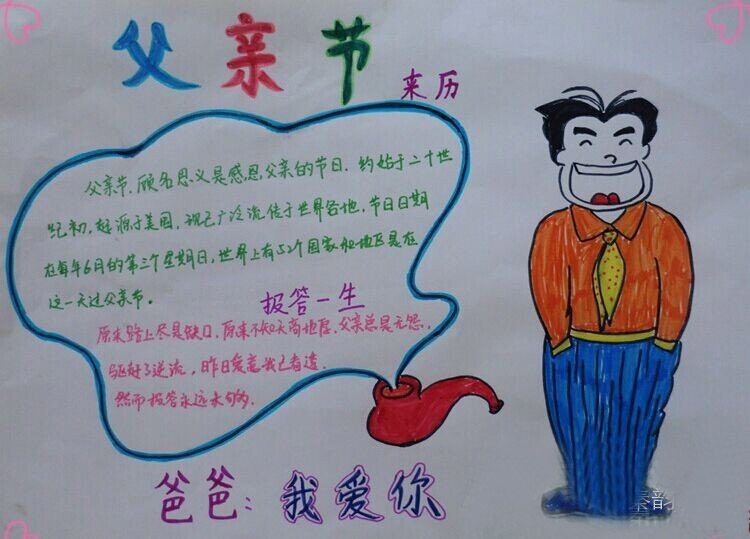 父亲节
来历
父亲节,顾名思义是感恩父亲的节日.约始于二十世
纪初,起源于美国,现已广泛流传于世界各地,节日日期
在每年6月的第三个星期日,世界上有52个国家和地区是在
这一天过父亲节。
报答一生
原来路上尽是缺口,原来不知天高地厚,父亲总是无怨,
驱赶了逆流,昨日覆盖我已看透.
然而报答永远未够.
爸爸:我爱你
秦韵